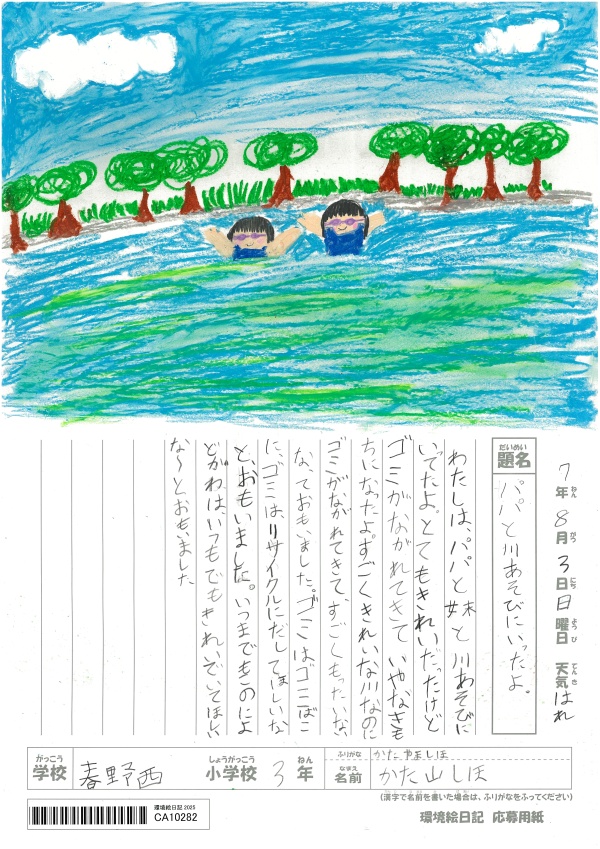 7年8月3日日曜日 天気はれ
ねん がつ にち ようび てんき
だいめい
題名
パパと川あそびにいったよ。
わたしは、パパと妹と川あそびに
いってたよ。とてもきれいだったけど
ゴミがながれてきていやなきも
ちになったよ。すごくきれいな川なのに
ゴミがながれてきて、すごくもったいない
な、ておもいました。ゴミはゴミばこ
に、ゴミは、リサイクルにだしてほしいな
と、おもいました。いつまでもきのによ
どがわは、いつもでもきれいでいてほしい
な〜とおもいました
がっこう
学校
春野西
しょうがっこう
小学校
3
ねん
年
ふりがな
かたやましほ
なまえ
名前
かた山しほ
(漢字で名前を書いた場合は、ふりがなをふってください)
環境絵日記 2025
CA10282
環境絵日記 応募用紙